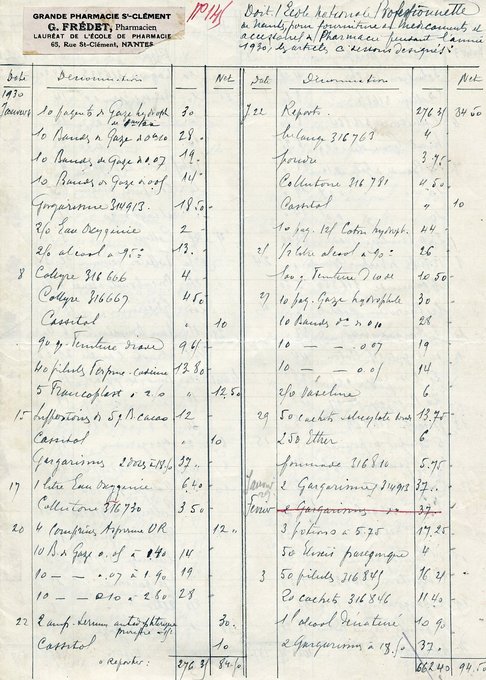 GRANDE PHARMACIE St-CLÉMENT
G. FRÉDET, Pharmacien
LAURÉAT DE L'ÉCOLE DE PHARMACIE
65, Rue St-Clément, NANTES
Doit l'Ecole Nationale Professionnelle
de Nantes, pour fourniture de médicaments et
accessoires de Pharmacie pendant l'année
1930, les articles ci dessous désignés:
Date Dénomination Net
1930
Janvier 10 paquets de Gaze hydroph 30
10 Bandes de Gaze 0m10 28
10 Bandes de Gaze 0.07 19
10 Bandes de Gaze 0.05 14
Gargarisme 314913. 18.50
Eau Oxygénée 2
alcool à 95° 13.
8 Collyre 316666 4
Collyre 316667 4.50
Cassitol 10
90 g. Teinture d'iode
40 pilules Terpine-codéine 13.80
5 Francoplast à 2.50 12.50
15 Suppositoires de Cacao 12
Cassitol 10
Gargarismes 37.
17 1 litre Eau Oxygénée 6.40
Collutoire 316730 3.50
20 4 Comprimés Aspirine 12
10 B. de Gaze 0.05 à 1.40 14
10 — — 0.07 à 1.90 19
10 — — 0.10 à 2.80 28
22 2 amp. Serum 30.
Cassitol 10
à Reporter: 276.35 84.50
Date Dénomination Net
J 22 Reports. 276.35 84.50
Mélange 316763 4
poudre 3.75
Collutoire 316781 4.50
Cassitol 10
10 paq. Coton hydroph. 44
1/2 litre alcool à 90° 26
100 g. Teinture d'iode 10.50
27 10 paq. Gaze hydrophile 30
10 Bandes 0.10 28
10 — — 0.07 19
10 — — 0.05 14
Vaseline 6
29 50 cachets 13.75
250 Ether 6
pommade 316810 5.75
Janvier 29 2 Gargarismes 314913 37.
Fevrier 2 Gargarismes 37.
3 potions à 5.75 17.25
50 Elixir parégorique 4
3 50 pilules 316845 16.25
20 cachets 316846 11.40
1 l alcool dénaturé 10.90
2 Gargarismes à 18.50 37.
662.40 94.50